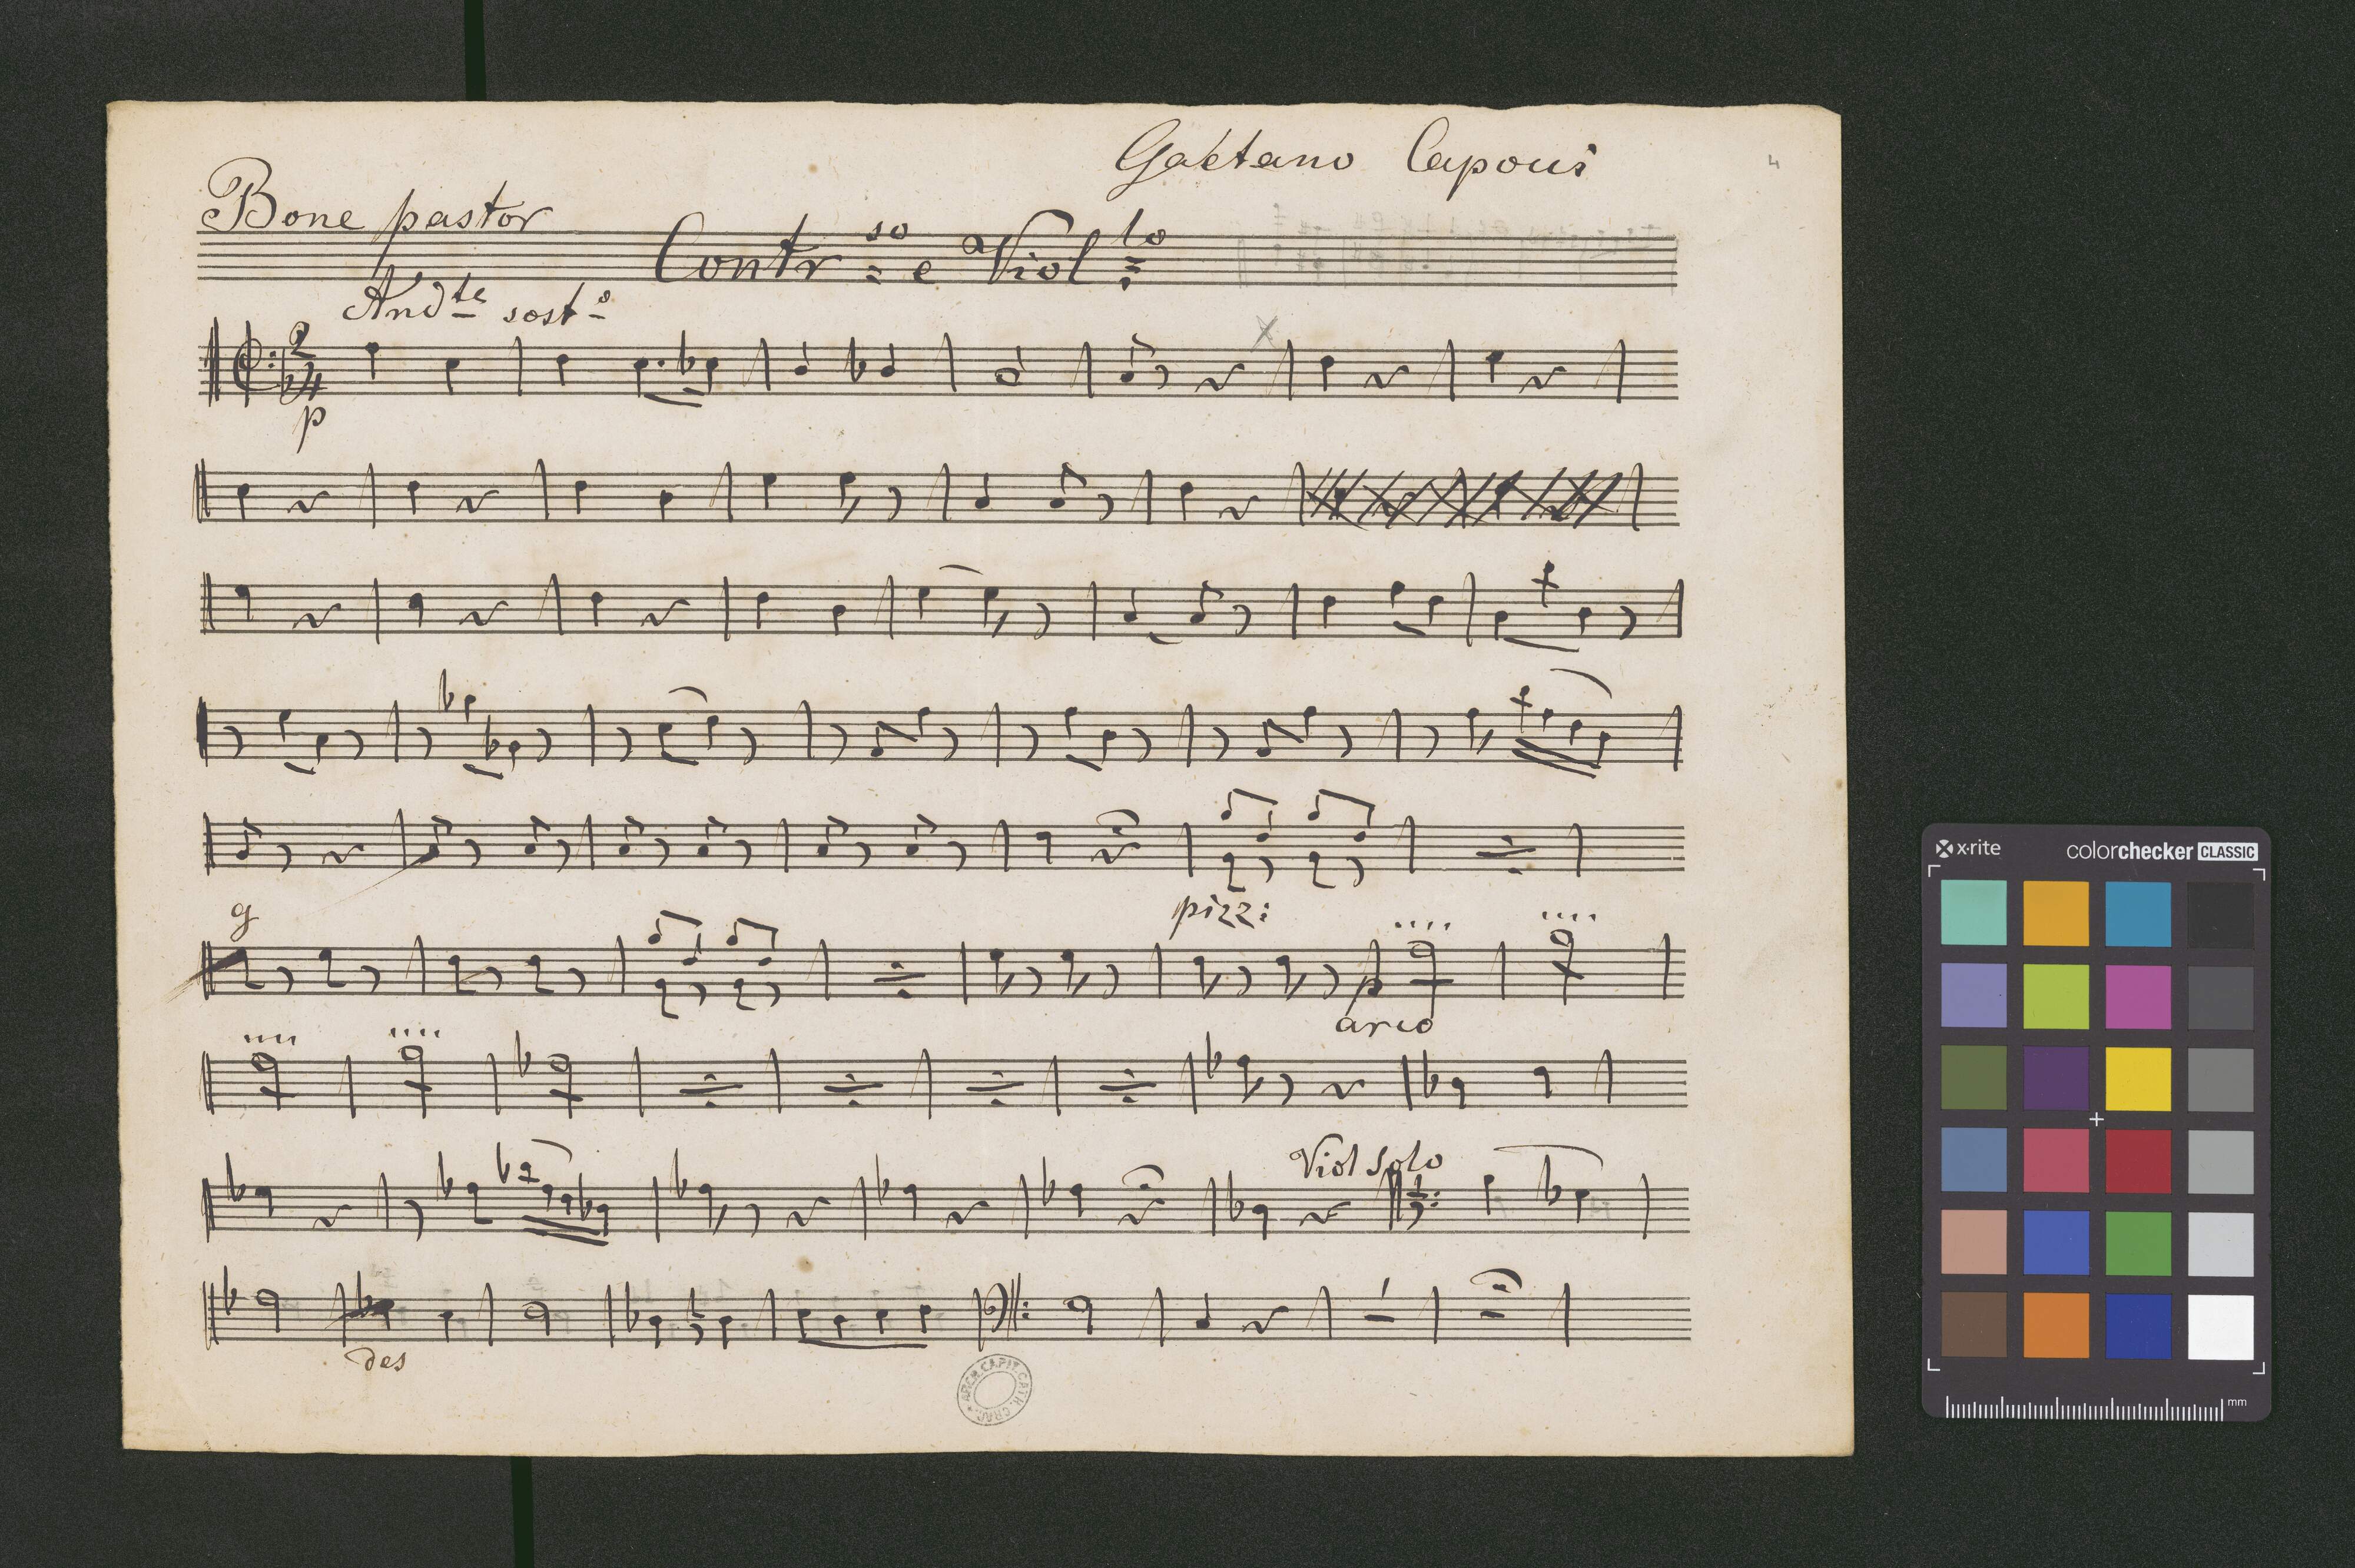 Gaétano Capoui
4
Bone pastor
Contr so e Viol lo
And te sost o
2
4
p
g
pizz:
p
arco
Viol Solo
des
ARCH. CAPIT. CATH. CRAC.
x·rite
colorchecker CLASSIC
mm